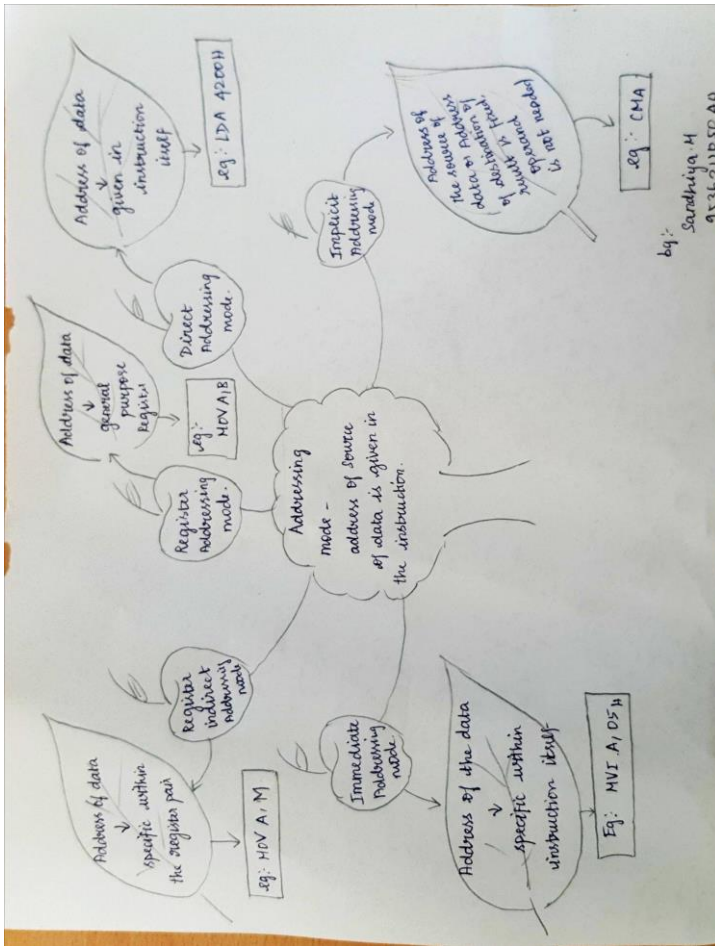 Addressing
mode -
address of source
of data is given in
the instruction.
Immediate
Addressing
mode
Address of the data
specific within
instruction itself
Eg:- MVI A, 05H
Register
indirect
Addressing
mode
Address of data
specific within
the register pair
eg:- MOV A, M
Register
Addressing
mode.
Address of data
general
purpose
Register
eg:-
MOV A, B
Direct
Addressing
mode.
Address of data
given in
instruction
itself
eg:- LDA 4200H
Implicit
Addressing
mode
Address of
the source of
data or Address of
of destination
result is
operand
is not needed
eg:- CMA
by:-
Sandhiya.M